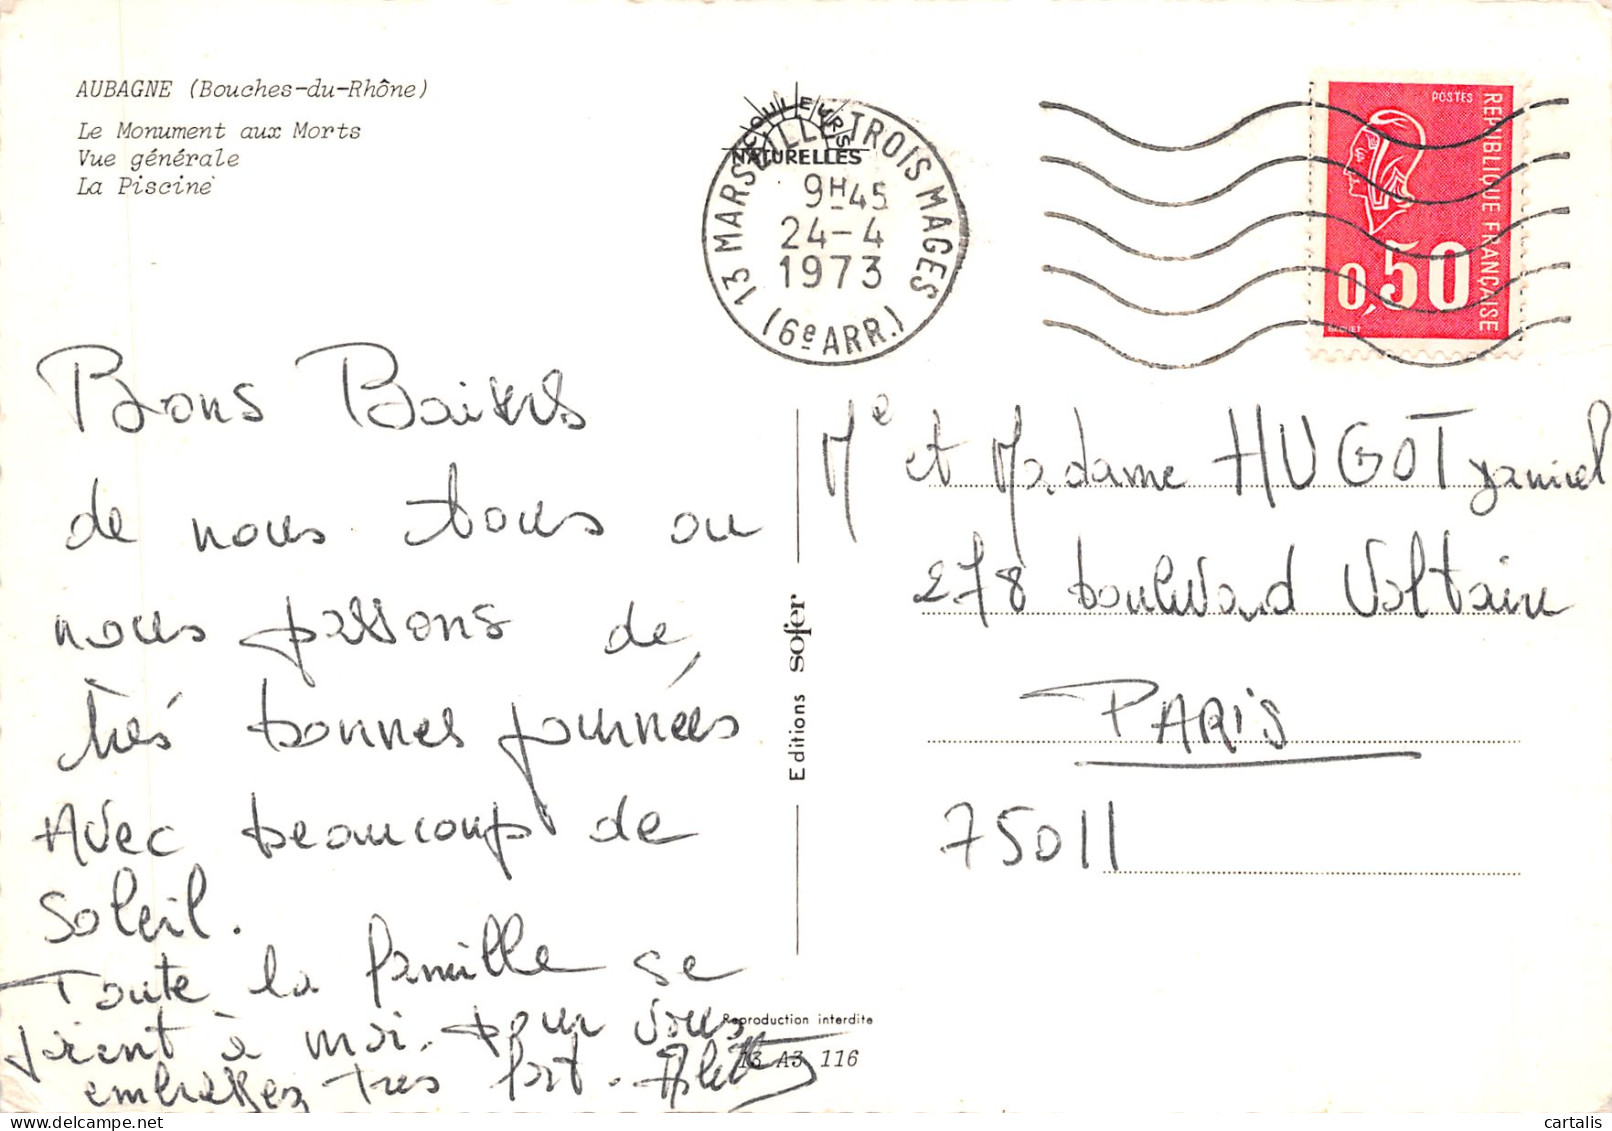 AUBAGNE (Bouches-du-Rhône)
Le Monument aux Morts
Vue générale
La Piscine
COULEURS
NATURELLES
13 MARSEILLE TROIS MAGES
9H45
24-4
1973
(6e ARR.)
POSTES
REPUBLIQUE FRANÇAISE
0,50
BEQUET
Bons Baisers
de nous tous ou
nous passons de
très bonnes journées
Avec beaucoup de
soleil.
Toute la famille se
joient à moi. pour vous
embrassez très fort.
Me et Madame HUGOT Daniel
278 boulevard Voltaire
PARIS
75011
Editions sofer
Reproduction interdite
13 A3 116
cartalis